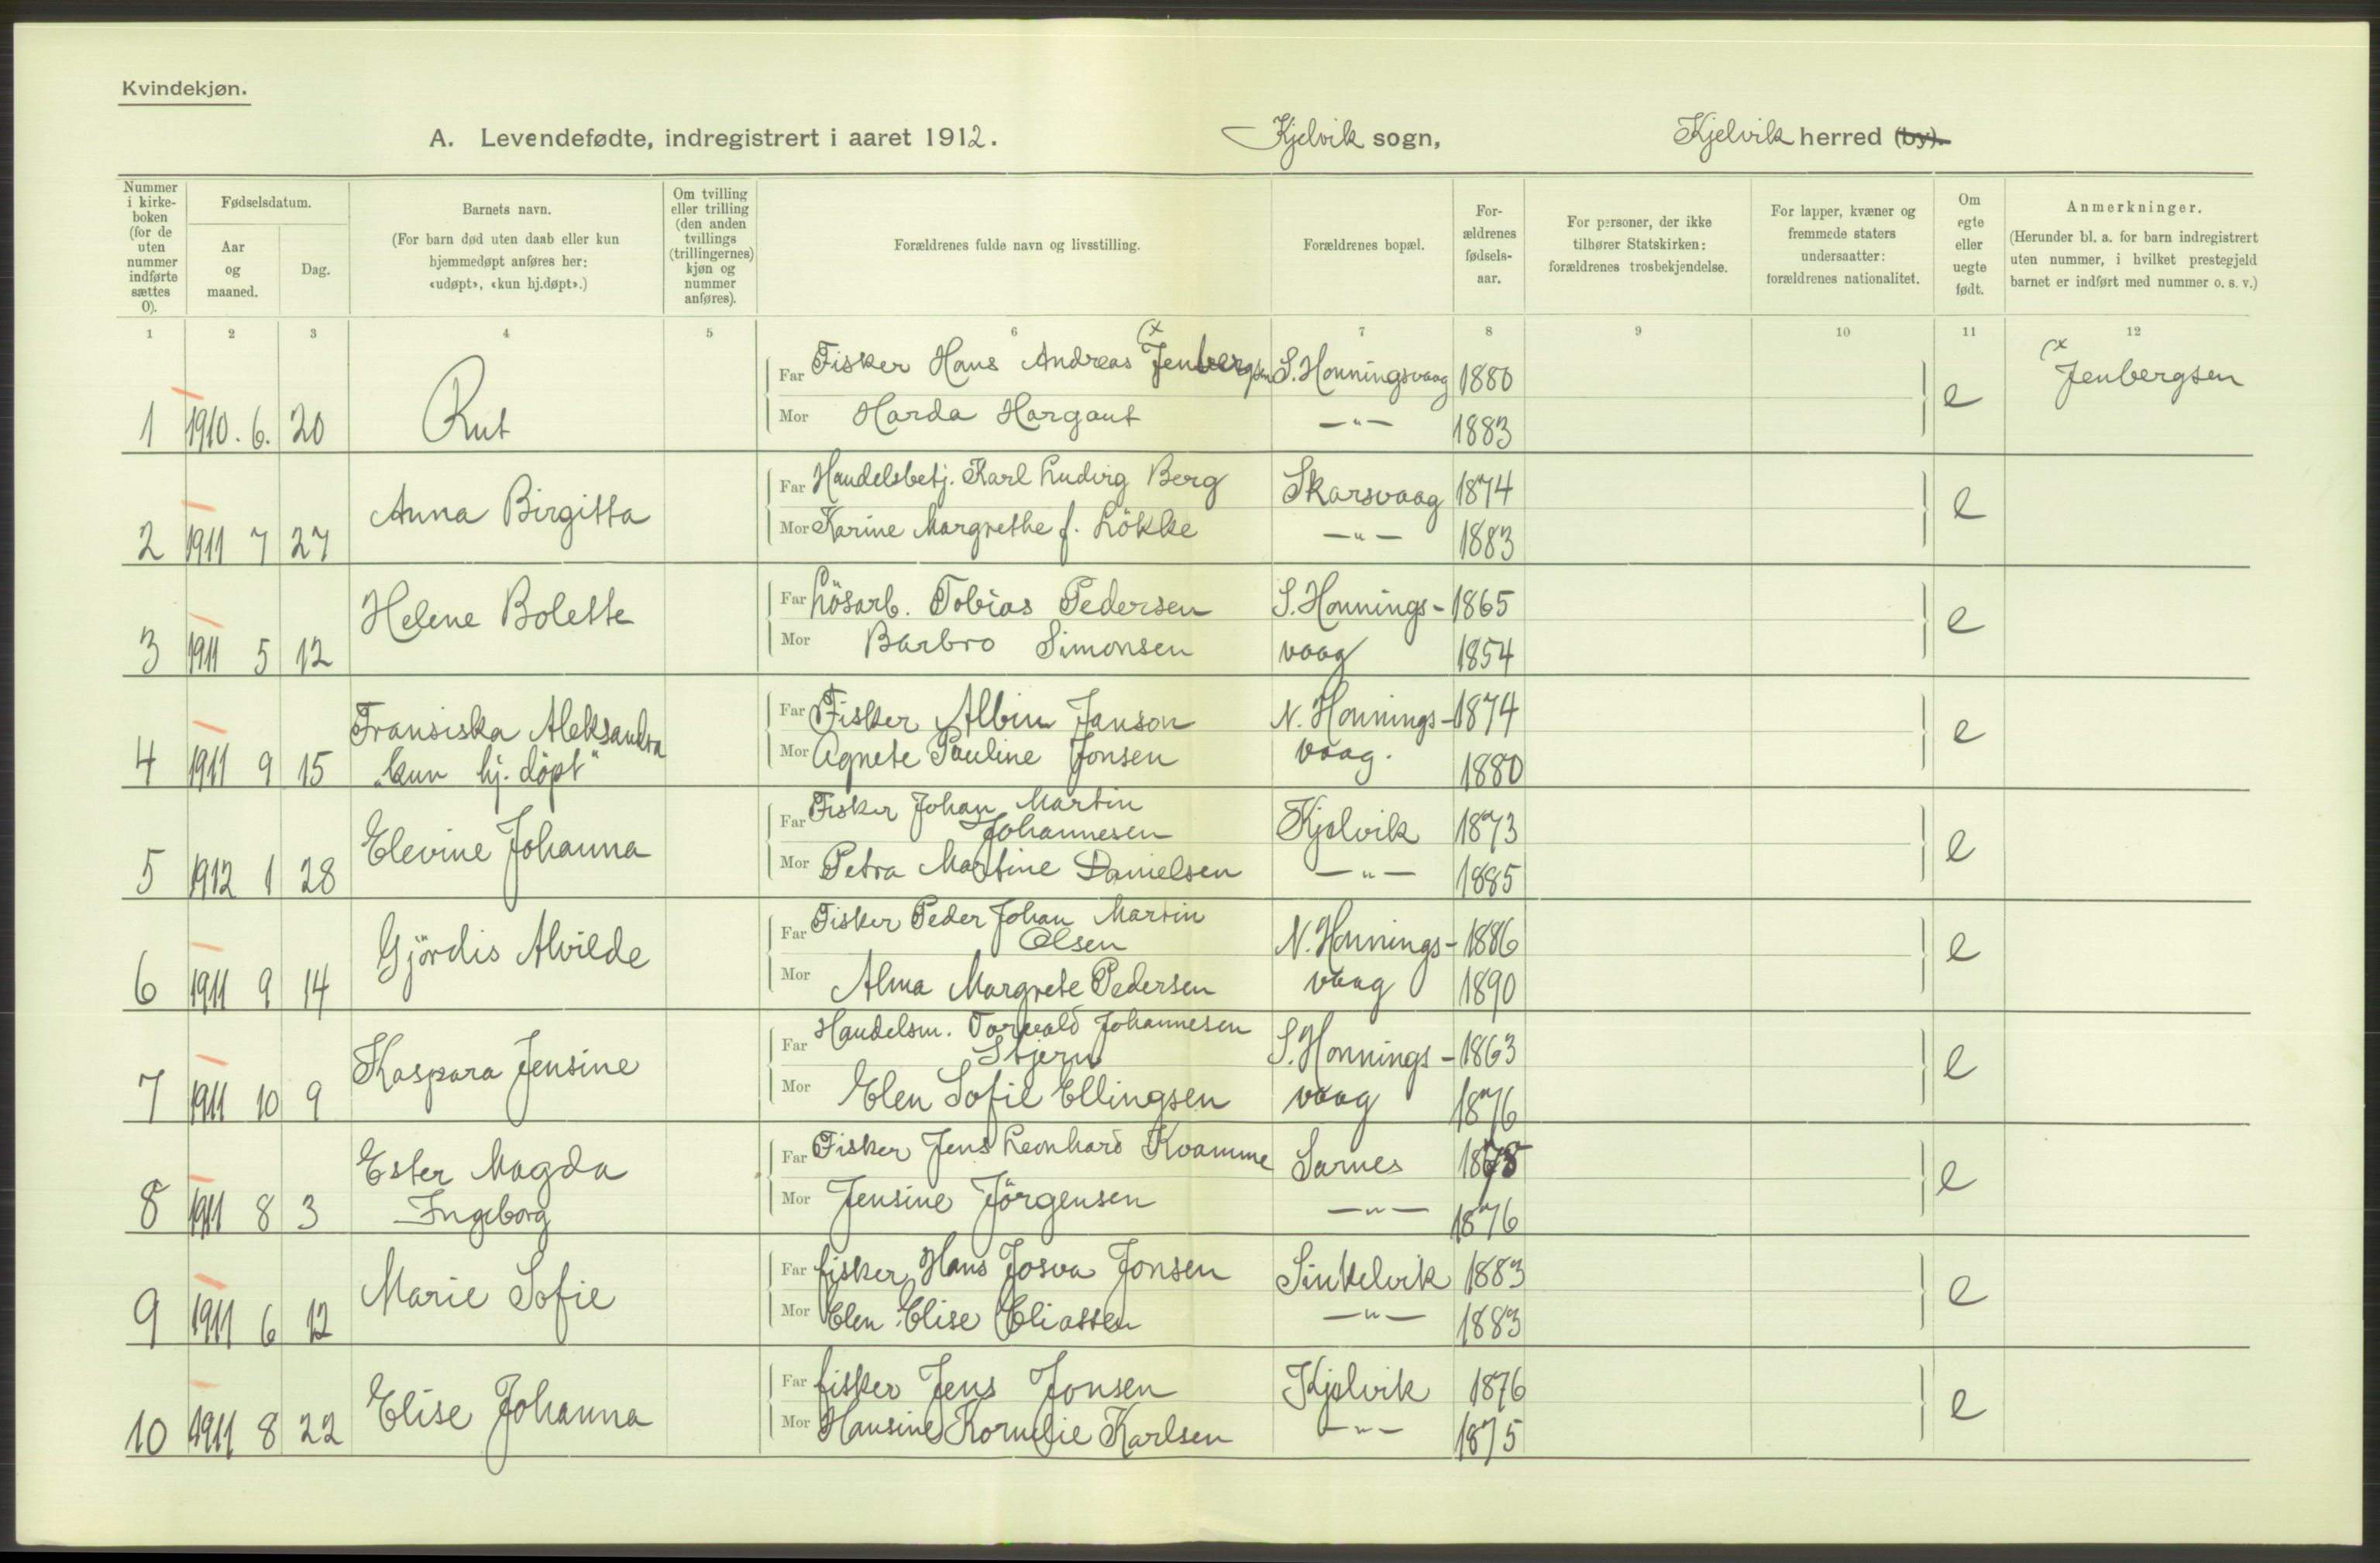 Kvindekjøn.
A. Levendefødte, indregistrert i aaret 1912. Kjelvik sogn, Kjelvik herred (by).
Nummer i kirke-boken (for de uten nummer indførte sættes 0).
Fødselsdatum.
Aar og maaned.
Dag.
Barnets navn.
(For barn død uten daab eller kun hjemmedøpt anføres her: «udøpt», «kun hj.døpt».)
Om tvilling eller trilling (den anden tvillings (trillingernes) kjøn og nummer anføres).
Forældrenes fulde navn og livsstilling.
Forældrenes bopæl.
For-ældrenes fødsels-aar.
For personer, der ikke tilhører Statskirken: forældrenes trosbekjendelse.
For lapper, kvæner og fremmede staters undersaatter: forældrenes nationalitet.
Om egte eller uegte født.
Anmerkninger.
(Herunder bl. a. for barn indregistrert uten nummer, i hvilket prestegjeld barnet er indført med nummer o. s. v.)
1 2 3 4 5 6 7 8 9 10 11 12
Far Fisker Hans Andreas (x Jenbergsen S. Honningsvaag 1880 (x Jenbergsen
1 1910. 6. 20 Rut Mor Harda Hargaut —"— 1883 e
Far Handelsbetj. Karl Ludvig Berg Skarsvaag 1874
2 1911 7 27 Anna Birgitta Mor Karine Margrethe f. Lökke —"— 1883 e
Far Lösarb. Tobias Pedersen S. Honnings- 1865
3 1911 5 12 Helene Bolette Mor Barbro Simonsen vaag 1854 e
Far Fisker Albin Janson N. Honnings- 1874
4 1911 9 15 Fransiska Aleksandra Mor Agnete Pauline Jonsen vaag. 1880 e
„kun hj. döpt"
Far Fisker Johan Martin
Johannesen Kjelvik 1873
5 1912 1 28 Elevine Johanna Mor Petra Martine Danielsen —"— 1885 e
Far Fisker Peder Johan Martin
Olsen N. Honnings- 1886
6 1911 9 14 Gjördis Alvilde Mor Alma Margrete Pedersen vaag 1890 e
Far Handelsm. Torvald Johannesen
Stjern S. Honnings- 1863
7 1911 10 9 Kaspara Jensine Mor Elen Sofie Ellingsen vaag 1876 e
Far Fisker Jens Leonhard Kvamme Sarnes 1878
8 1911 8 3 Ester Magda
Ingeborg Mor Jensine Jörgensen —"— 1876 e
Far fisker Hans Josva Jonsen Sinkelvik 1883
9 1911 6 12 Marie Sofie Mor Elen Elise Eliassen —"— 1883 e
Far fisker Jens Jonsen Kjelvik 1876
10 1911 8 22 Elise Johanna Mor Hansine Kornelie Karlsen —"— 1875 e